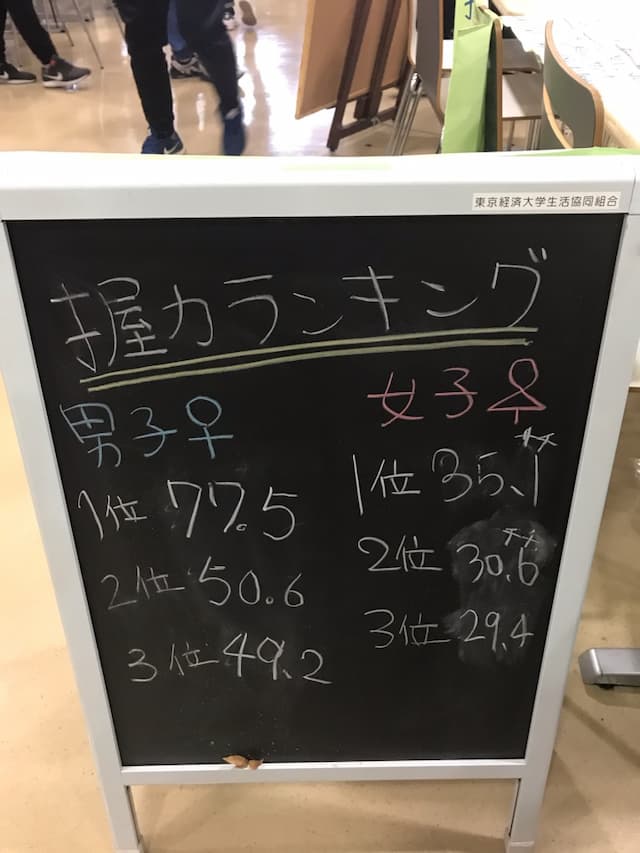 東京経済大学生活協同組合
握力ランキング
男子
1位 77.5
2位 50.6
3位 49.2
女子
1位 35.1
2位 30.6
3位 29.4